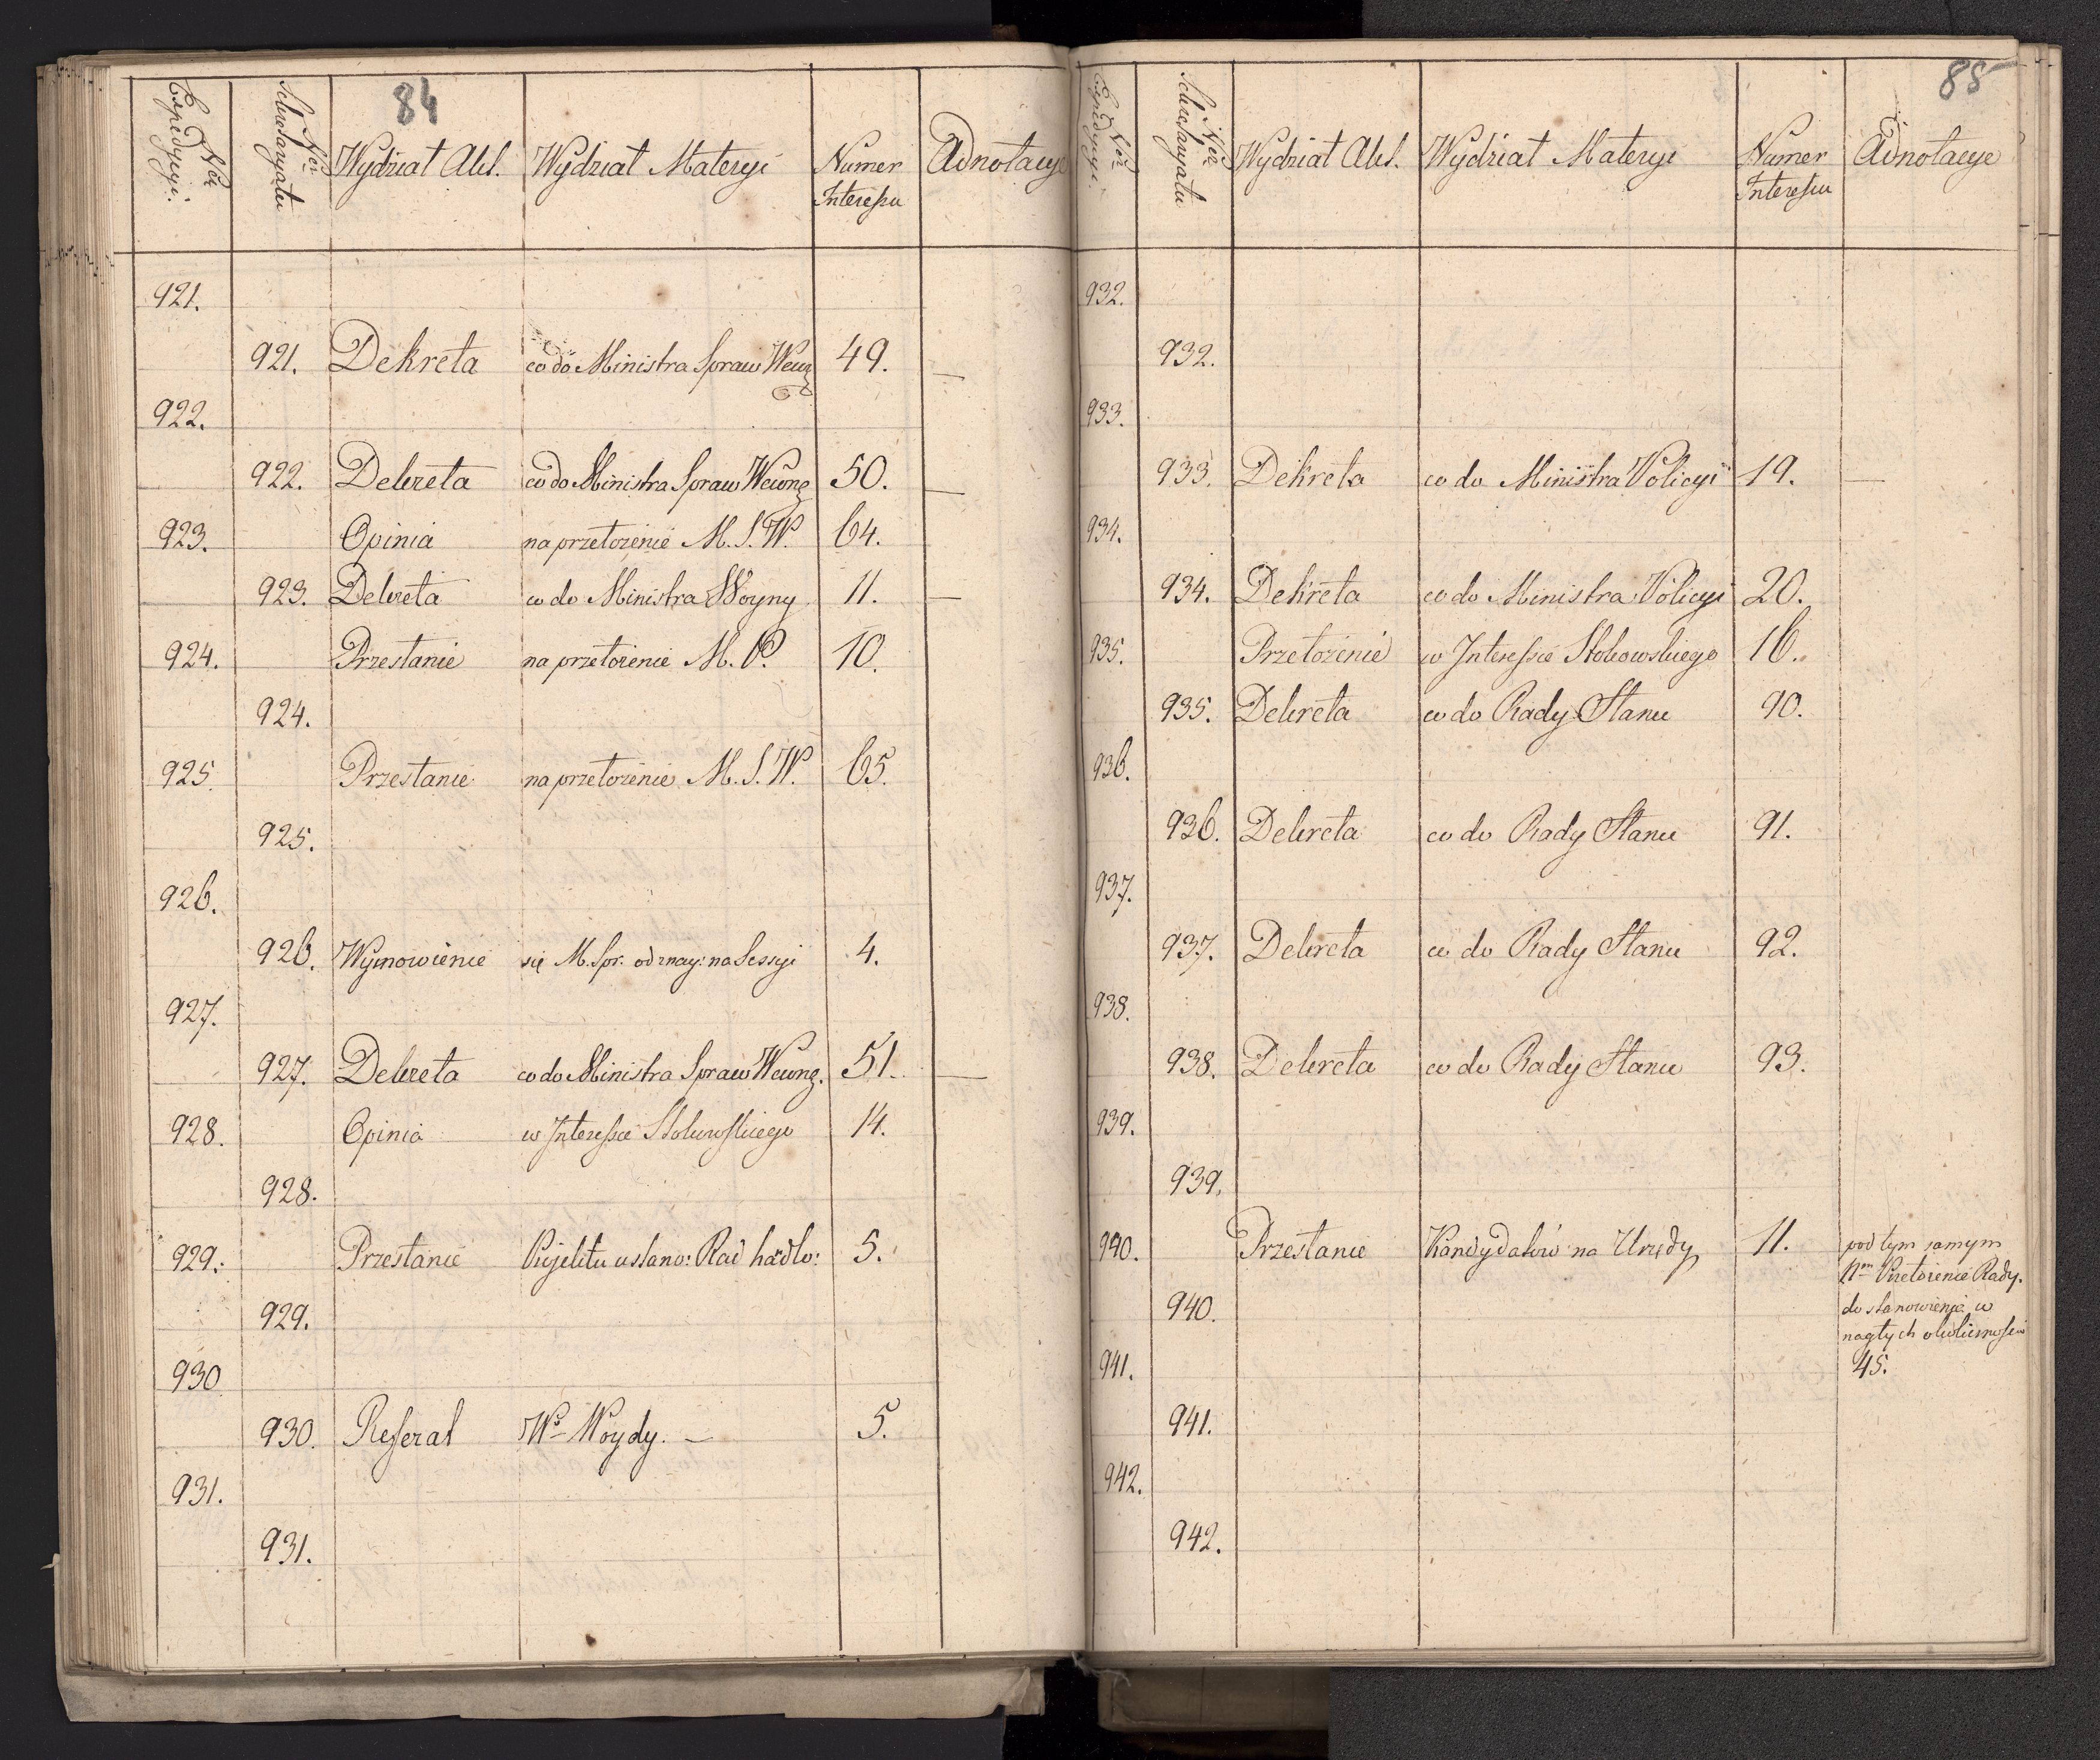 84
Nro Expedycyi. Nro Sekretaryatu Wydział Akt. Wydział Materyi Numer Interessu Adnotacye
921.
921. Dekreta co do Ministra Spraw Wewnę 49. —
922.
922. Dekreta co do Ministra Spraw Wewnę 50. —
923. Opinia na przełożenie M. S. W. 64.
923. Dekreta co do Ministra Woyny 11. —
924. Przesłanie na przełożenie M. P. 10.
924.
925. Przesłanie na przełożenie M. S. W. 65.
925.
926.
926. Wymowienie się M. Spr. od znay: na Sessyi 4.
927.
927. Dekreta co do Ministra Spraw Wewnę. 51. —
928. Opinia w Interessie Stokowskiego 14.
928.
929. Przesłanie Projektu ustano: Rad hadlo: 5.
929.
930
930. Referat Wo Woydy. — 5.
931.
931.
85
Nro Expedycyi. Nro Sekretaryatu Wydział Akt. Wydział Materyi Numer Interessu Adnotacye
932.
932.
933.
933. Dekreta co do Ministra Policyi 19. —
934.
934. Dekreta co do Ministra Policyi 20.
935. Przełożenie w Interessie Stokowskiego 16.
935. Dekreta co do Rady Stanu 90.
936.
936. Dekreta co do Rady Stanu 91.
937.
937. Dekreta co do Rady Stanu 92.
938.
938. Dekreta co do Rady Stanu 93.
939.
939.
940. Przesłanie Kandydatów na Urzędy 11. pod tym samym
Nem Przełożenie Rady.
940. do stanowienia w
nagłych okolicznościa
941. 45.
941.
942.
942.